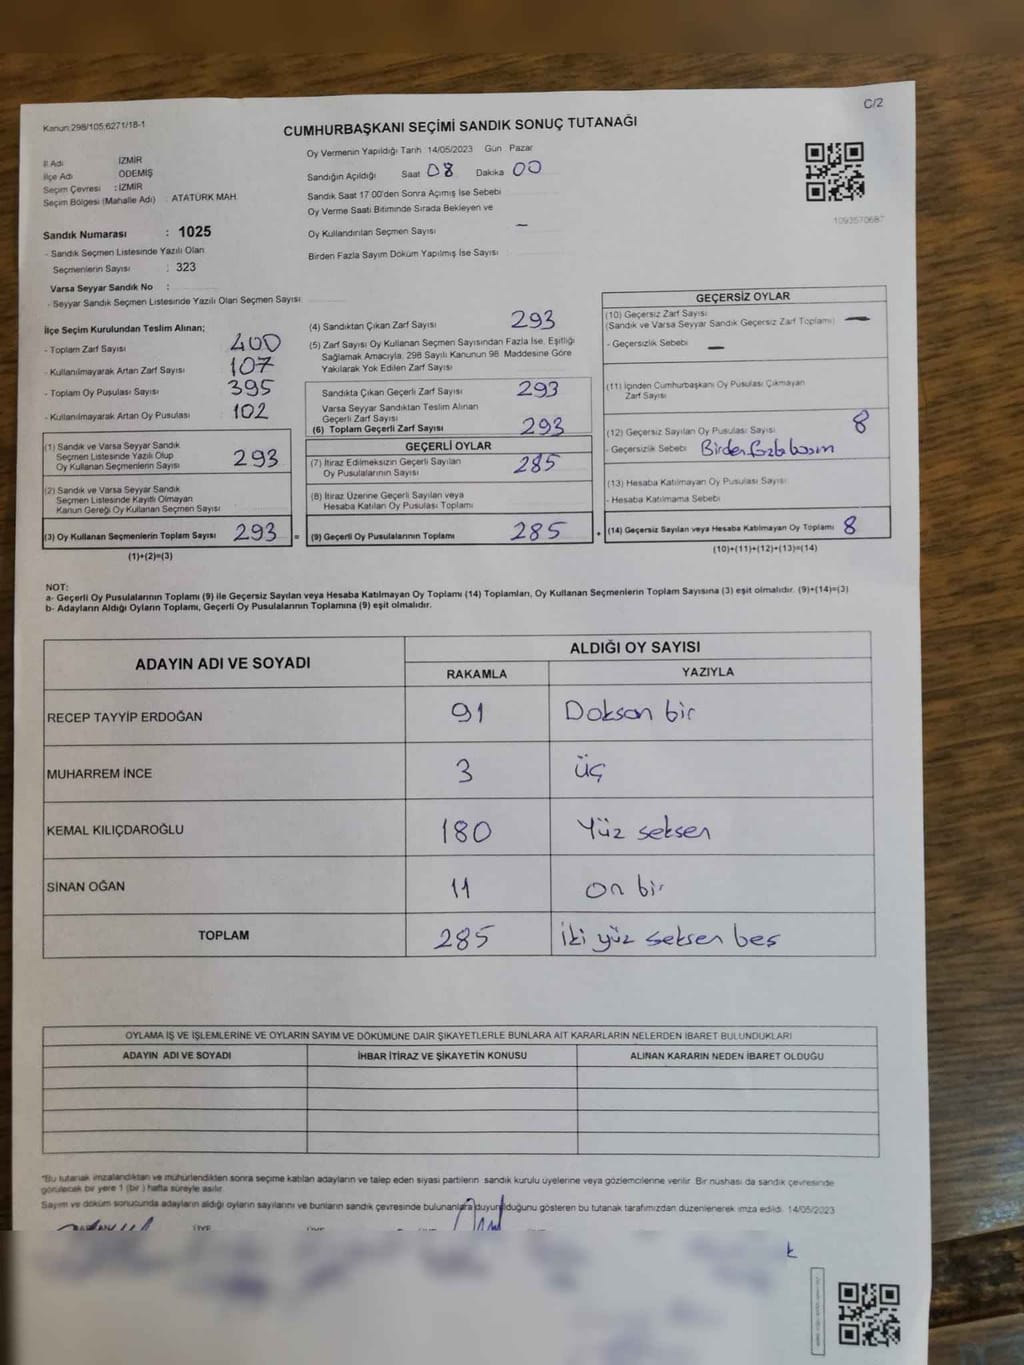 C/2
Kanun:298/105;6271/18-1
CUMHURBAŞKANI SEÇİMİ SANDIK SONUÇ TUTANAĞI
İl Adı İZMİR
İlçe Adı ÖDEMİŞ
Seçim Çevresi : İZMİR
Seçim Bölgesi (Mahalle Adı) : ATATÜRK MAH.
Sandık Numarası : 1025
- Sandık Seçmen Listesinde Yazılı Olan
Seçmenlerin Sayısı : 323
Varsa Seyyar Sandık No :
- Seyyar Sandık Seçmen Listesinde Yazılı Olan Seçmen Sayısı
Oy Vermenin Yapıldığı Tarih 14/05/2023 Gün Pazar
Sandığın Açıldığı Saat 08 Dakika 00
Sandık Saat 17:00'den Sonra Açımış İse Sebebi
Oy Verme Saati Bitiminde Sırada Bekleyen ve
Oy Kullandırılan Seçmen Sayısı —
Birden Fazla Sayım Döküm Yapılmış İse Sayısı
1093570687
İlçe Seçim Kurulundan Teslim Alınan;
- Toplam Zarf Sayısı 400
- Kullanılmayarak Artan Zarf Sayısı 107
- Toplam Oy Pusulası Sayısı 395
- Kullanılmayarak Artan Oy Pusulası 102
(1) Sandık ve Varsa Seyyar Sandık
Seçmen Listesinde Yazılı Olup
Oy Kullanan Seçmenlerin Sayısı 293
(2) Sandık ve Varsa Seyyar Sandık
Seçmen Listesinde Kayıtlı Olmayan
Kanun Gereği Oy Kullanan Seçmen Sayısı
(3) Oy Kullanan Seçmenlerin Toplam Sayısı 293 =
(1)+(2)=(3)
(4) Sandıktan Çıkan Zarf Sayısı 293
(5) Zarf Sayısı Oy Kullanan Seçmen Sayısından Fazla İse, Eşitliği
Sağlamak Amacıyla, 298 Sayılı Kanunun 98. Maddesine Göre
Yakılarak Yok Edilen Zarf Sayısı
Sandıkta Çıkan Geçerli Zarf Sayısı 293
Varsa Seyyar Sandıktan Teslim Alınan
Geçerli Zarf Sayısı
(6) Toplam Geçerli Zarf Sayısı 293
GEÇERLİ OYLAR
(7) İtiraz Edilmeksizin Geçerli Sayılan
Oy Pusulalarının Sayısı 285
(8) İtiraz Üzerine Geçerli Sayılan veya
Hesaba Katılan Oy Pusulası Toplamı
(9) Geçerli Oy Pusulalarının Toplamı 285 +
GEÇERSİZ OYLAR
(10) Geçersiz Zarf Sayısı
(Sandık ve Varsa Seyyar Sandık Geçersiz Zarf Toplamı) —
- Geçersizlik Sebebi —
(11) İçinden Cumhurbaşkanı Oy Pusulası Çıkmayan
Zarf Sayısı
(12) Geçersiz Sayılan Oy Pusulası Sayısı 8
- Geçersizlik Sebebi Birden fazla basım
(13) Hesaba Katılmayan Oy Pusulası Sayısı
- Hesaba Katılmama Sebebi
(14) Geçersiz Sayılan veya Hesaba Katılmayan Oy Toplamı 8
(10)+(11)+(12)+(13)=(14)
NOT:
a- Geçerli Oy Pusulalarının Toplamı (9) ile Geçersiz Sayılan veya Hesaba Katılmayan Oy Toplamı (14) Toplamları, Oy Kullanan Seçmenlerin Toplam Sayısına (3) eşit olmalıdır. (9)+(14)=(3)
b- Adayların Aldığı Oyların Toplamı, Geçerli Oy Pusulalarının Toplamına (9) eşit olmalıdır.
ADAYIN ADI VE SOYADI ALDIĞI OY SAYISI
RAKAMLA YAZIYLA
RECEP TAYYİP ERDOĞAN 91 Doksan bir
MUHARREM İNCE 3 üç
KEMAL KILIÇDAROĞLU 180 Yüz seksen
SİNAN OĞAN 11 on bir
TOPLAM 285 iki yüz seksen beş
OYLAMA İŞ VE İŞLEMLERİNE VE OYLARIN SAYIM VE DÖKÜMÜNE DAİR ŞİKAYETLERLE BUNLARA AİT KARARLARIN NELERDEN İBARET BULUNDUKLARI
ADAYIN ADI VE SOYADI İHBAR İTİRAZ VE ŞİKAYETİN KONUSU ALINAN KARARIN NEDEN İBARET OLDUĞU
*Bu tutanak imzalandıktan ve mühürlendikten sonra seçime katılan adayların ve talep eden siyasi partilerin sandık kurulu üyelerine veya gözlemcilerine verilir. Bir nushası da sandık çevresinde
görülecek bir yere 1 (bir) hafta süreyle asılır.
Sayım ve döküm sonucunda adayların aldığı oyların sayılarını ve bunların sandık çevresinde bulunanlara duyurulduğunu gösteren bu tutanak tarafımızdan düzenlenerek imza edildi. 14/05/2023